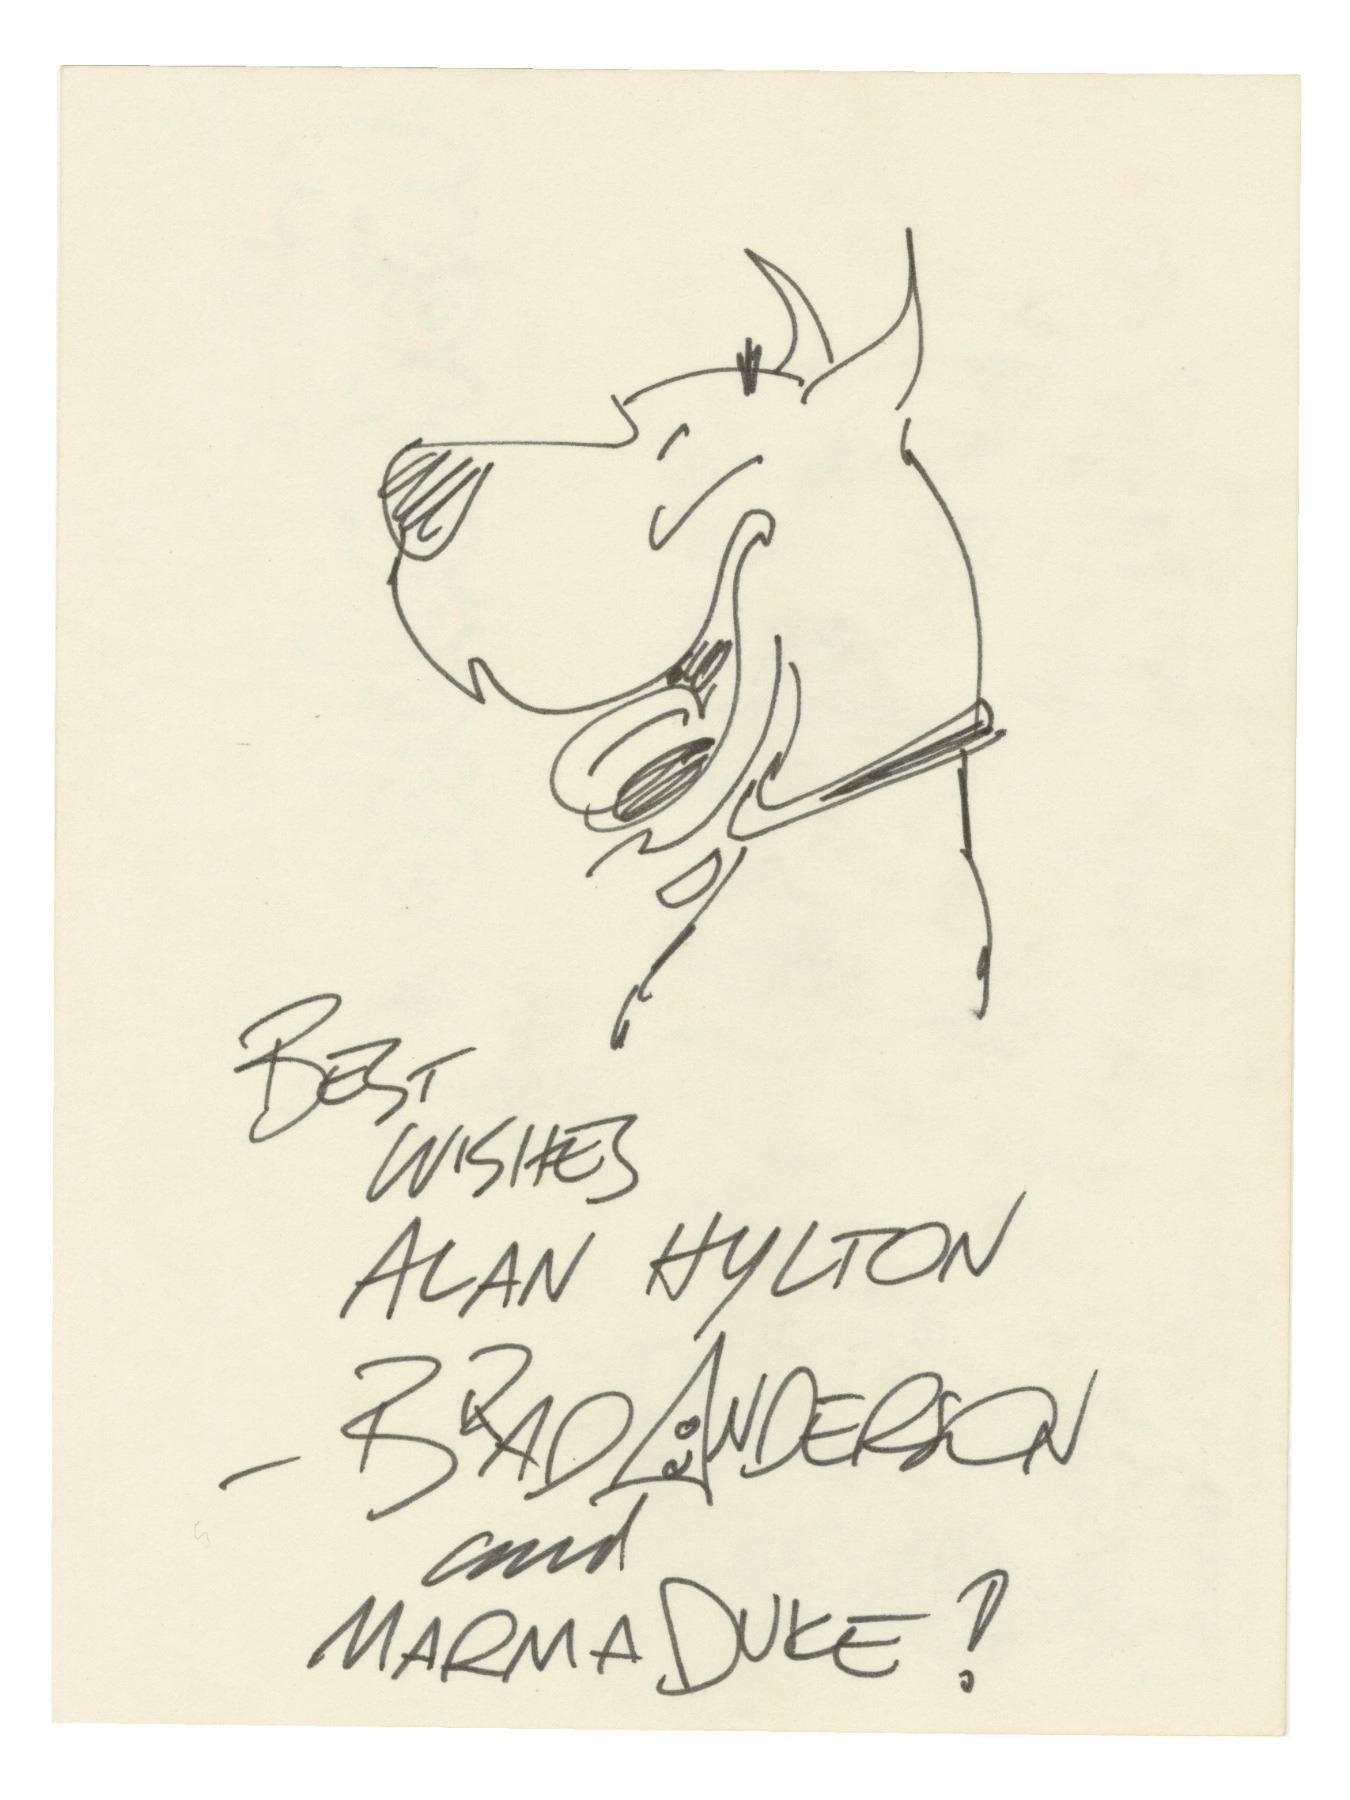 BEST
WISHES
ALAN HYLTON
– BRAD ANDERSON
and
MARMADUKE!